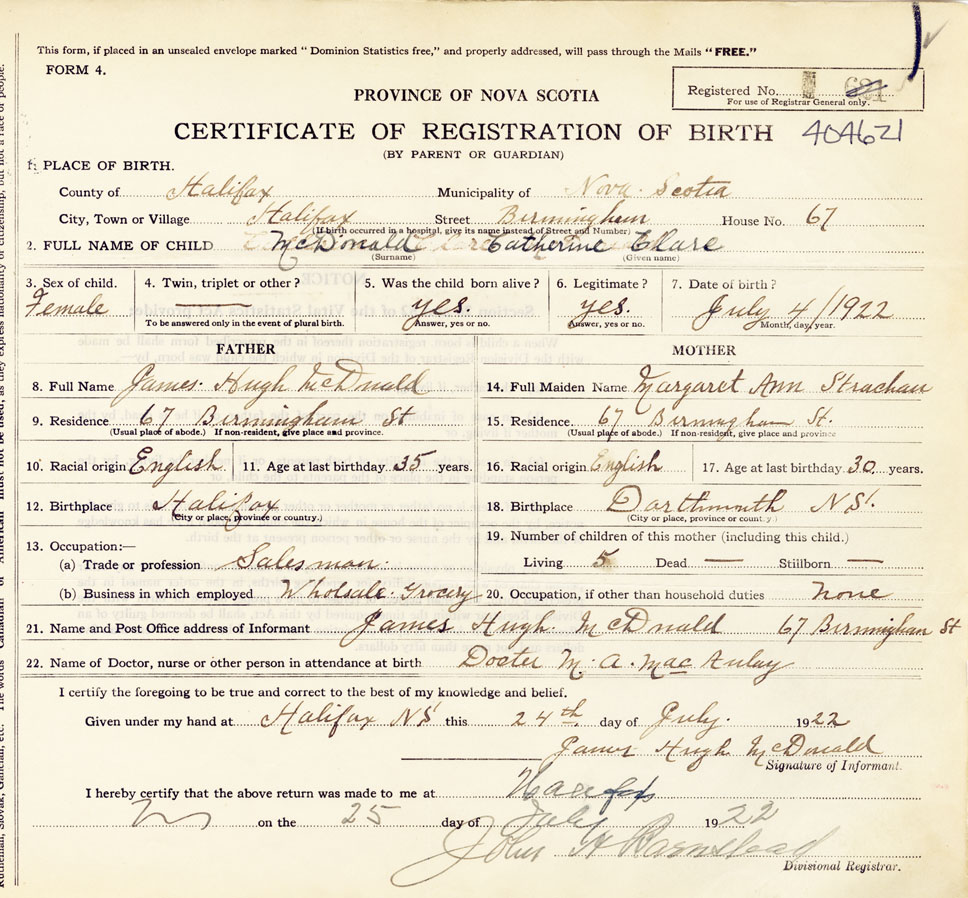 This form, if placed in an unsealed envelope marked "Dominion Statistics free," and properly addressed, will pass through the Mails "FREE."
FORM 4.
Registered No.
For use of Registrar General only.
PROVINCE OF NOVA SCOTIA
CERTIFICATE OF REGISTRATION OF BIRTH 404621
(BY PARENT OR GUARDIAN)
1. PLACE OF BIRTH.
County of Halifax Municipality of Nova Scotia
City, Town or Village Halifax Street Birmingham House No. 67
(If birth occurred in a hospital, give its name instead of Street and Number)
2. FULL NAME OF CHILD McDonald Catherine Clare
(Surname) (Given name)
3. Sex of child. 4. Twin, triplet or other? 5. Was the child born alive? 6. Legitimate? 7. Date of birth?
Female yes. yes. July 4/1922
To be answered only in the event of plural birth. Answer, yes or no. Answer, yes or no. Month, day, year.
FATHER MOTHER
8. Full Name James Hugh McDonald 14. Full Maiden Name Margaret Ann Strachan
9. Residence 67 Birmingham St 15. Residence 67 Birmingham St.
(Usual place of abode.) If non-resident, give place and province. (Usual place of abode.) If non-resident, give place and province
10. Racial origin English 11. Age at last birthday 35 years. 16. Racial origin English 17. Age at last birthday 30 years.
12. Birthplace Halifax 18. Birthplace Dartmouth NS.
(City or place, province or country.) (City or place, province or country.)
13. Occupation:— 19. Number of children of this mother (including this child.)
(a) Trade or profession Salesman. Living 5 Dead — Stillborn —
(b) Business in which employed Wholsale Grocery 20. Occupation, if other than household duties None
21. Name and Post Office address of Informant James Hugh McDonald 67 Birmighan St
22. Name of Doctor, nurse or other person in attendance at birth Docter M. A. MacAulay
I certify the foregoing to be true and correct to the best of my knowledge and belief.
Given under my hand at Halifax NS this 24th day of July. 1922
James Hugh McDonald
Signature of Informant.
I hereby certify that the above return was made to me at Halifax
on the 25 day of July 1922
John H Barnstead
Divisional Registrar.